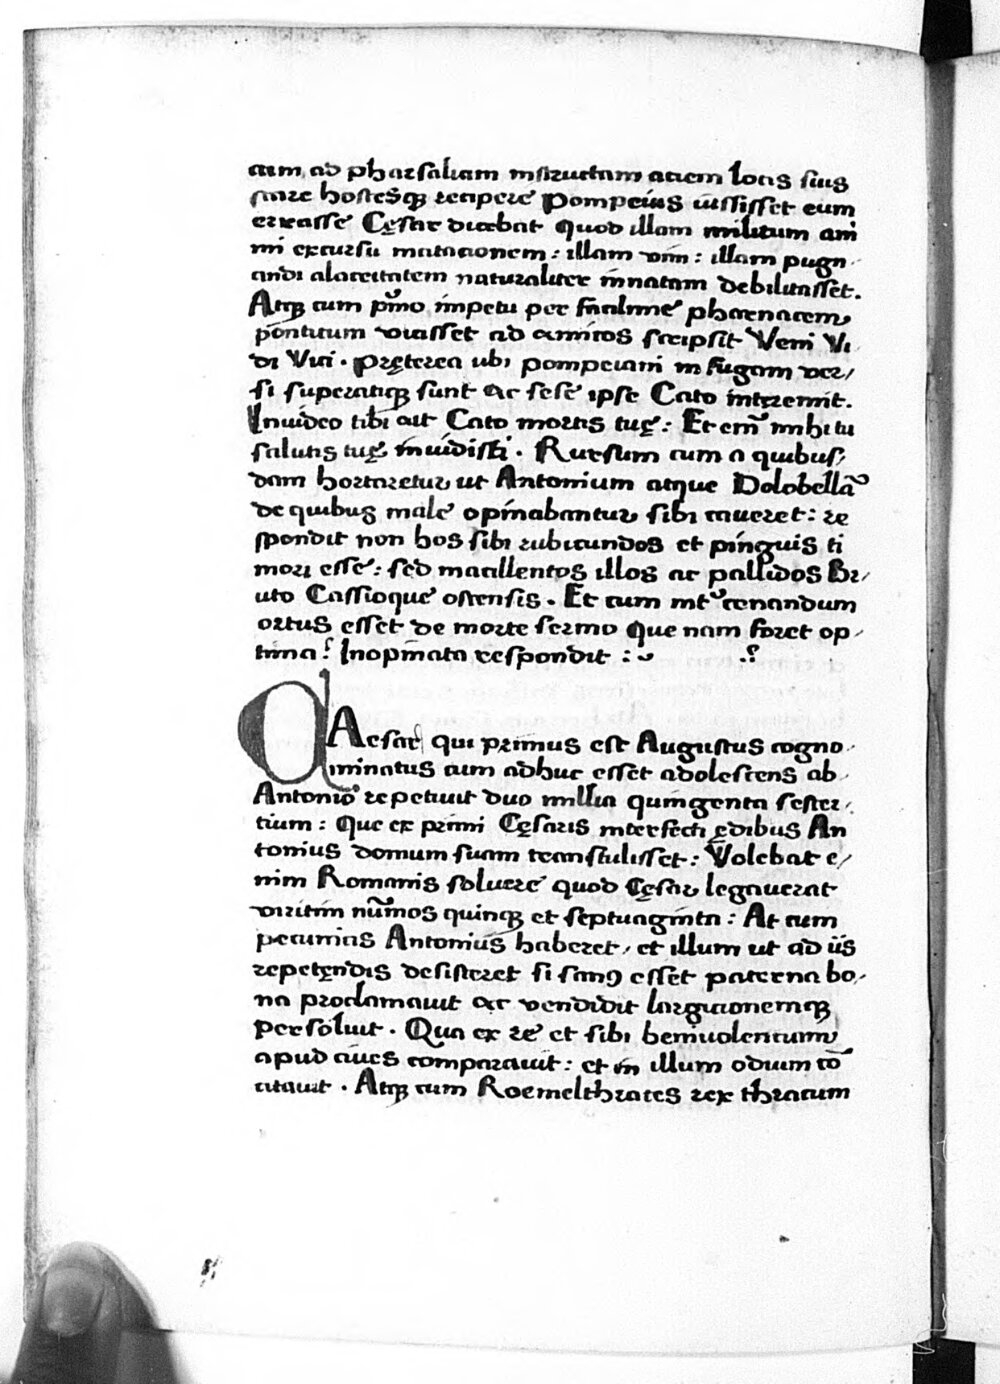 cum ad pharsaliam instructam aciem locis suis
stare hostesq; recipere Pompeius iussisset eum
errasse Cęsar dicebat quod illam militum ani
mi excursu mutacionem : illam vim : illam pugn-
andi alacritatem naturaliter innatam debilitasset.
Atq; cum pͫmo impetu per
pontitum vicisset ad amicos scripsit Veni Vi
di Vici . Pręterea ubi pompeiani in fugam ver/
si superatiq; sunt ac sese ipse Cato interemit.
Inuideo tibi ait Cato mortis tuę : Et em̃ mihi tu
salutis tuę inuidisti . Rursum cum a quibus/
dam hortaretur ut Antonium atque Dolobellã
de quibus male opinabantur sibi caueret : re
spondit non hos sibi rubicundos et pinguis ti
mori esse : sed macillentos illos ac pallidos Br/
uto Cassioque ostensis . Et cum int᷑ cenandum
ortus esset de morte sermo que nam foret op/
tima ? Inopinata respondit :~ .?
CAesar qui primus est Augustus cogno-
minatus cum adhuc esset adolescens ab
Antonio repetiuit duo millia quingenta sester-
tium : Que ex primi Cęsaris interfecti ędibus An
tonius domum suam transtulisset : Volebat e/
nim Romanis soluere quod Cęsar legauerat
viritim nũmos quinq; et septuaginta : At cum
pecunias Antonius haberet / et illum ut ad iis
repetęndis desisteret si sanꝰ esset paterna bo/
na proclamauit ac vendidit largicionemq;
persoluit . Qua ex re et sibi beniuolentiam
apud ciues comparauit : et in illum odium cõ
citauit . Atq; cum Roemelthrates rex thracum